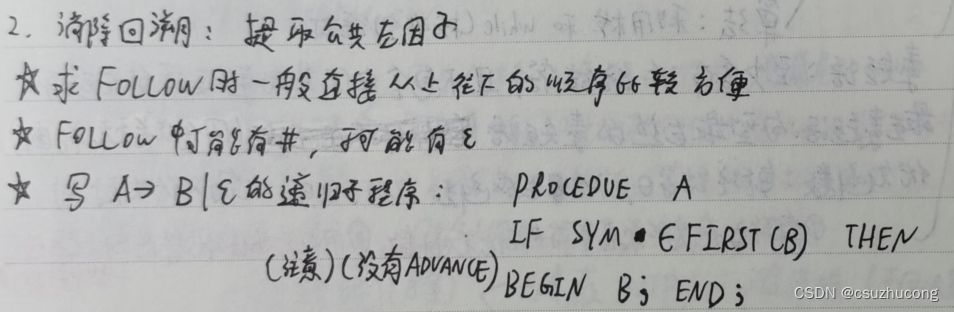 2. 消除回溯：提取公共左因子
☆ 求 FOLLOW 时一般直接从上往下的顺序比较方便
☆ FOLLOW 中可能有 #，不可能有 ε
☆ 写 A→B|ε 的递归子程序： PROCEDUE A
IF SYM ∈ FIRST(B) THEN
(注意)(没有ADVANCE) BEGIN B; END;
CSDN @csuzhucong